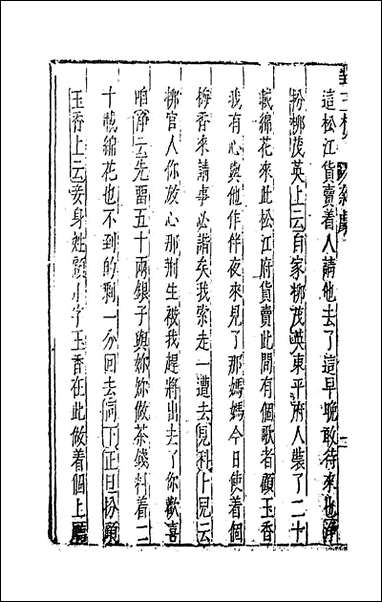 這松江貨賣着人請他去了這早晚敢待來也淨
扮柳茂英上云自家柳茂英東平府人裝了二十
載綿花來此松江府貨賣此間有個歌者顧玉香
我有心與他作伴夜來見了那媽媽今日使着個
梅香來請事必諧矣我索走一遭去見科卜兒云
柳官人你放心那荆生被我趕將出去了你歡喜
咱淨云先留五十兩銀子與妳妳做茶錢料着二
十載綿花也不到的剩一分回去同下正旦扮顧
玉香上云妾身姓顧小字玉香在此做着個上廳